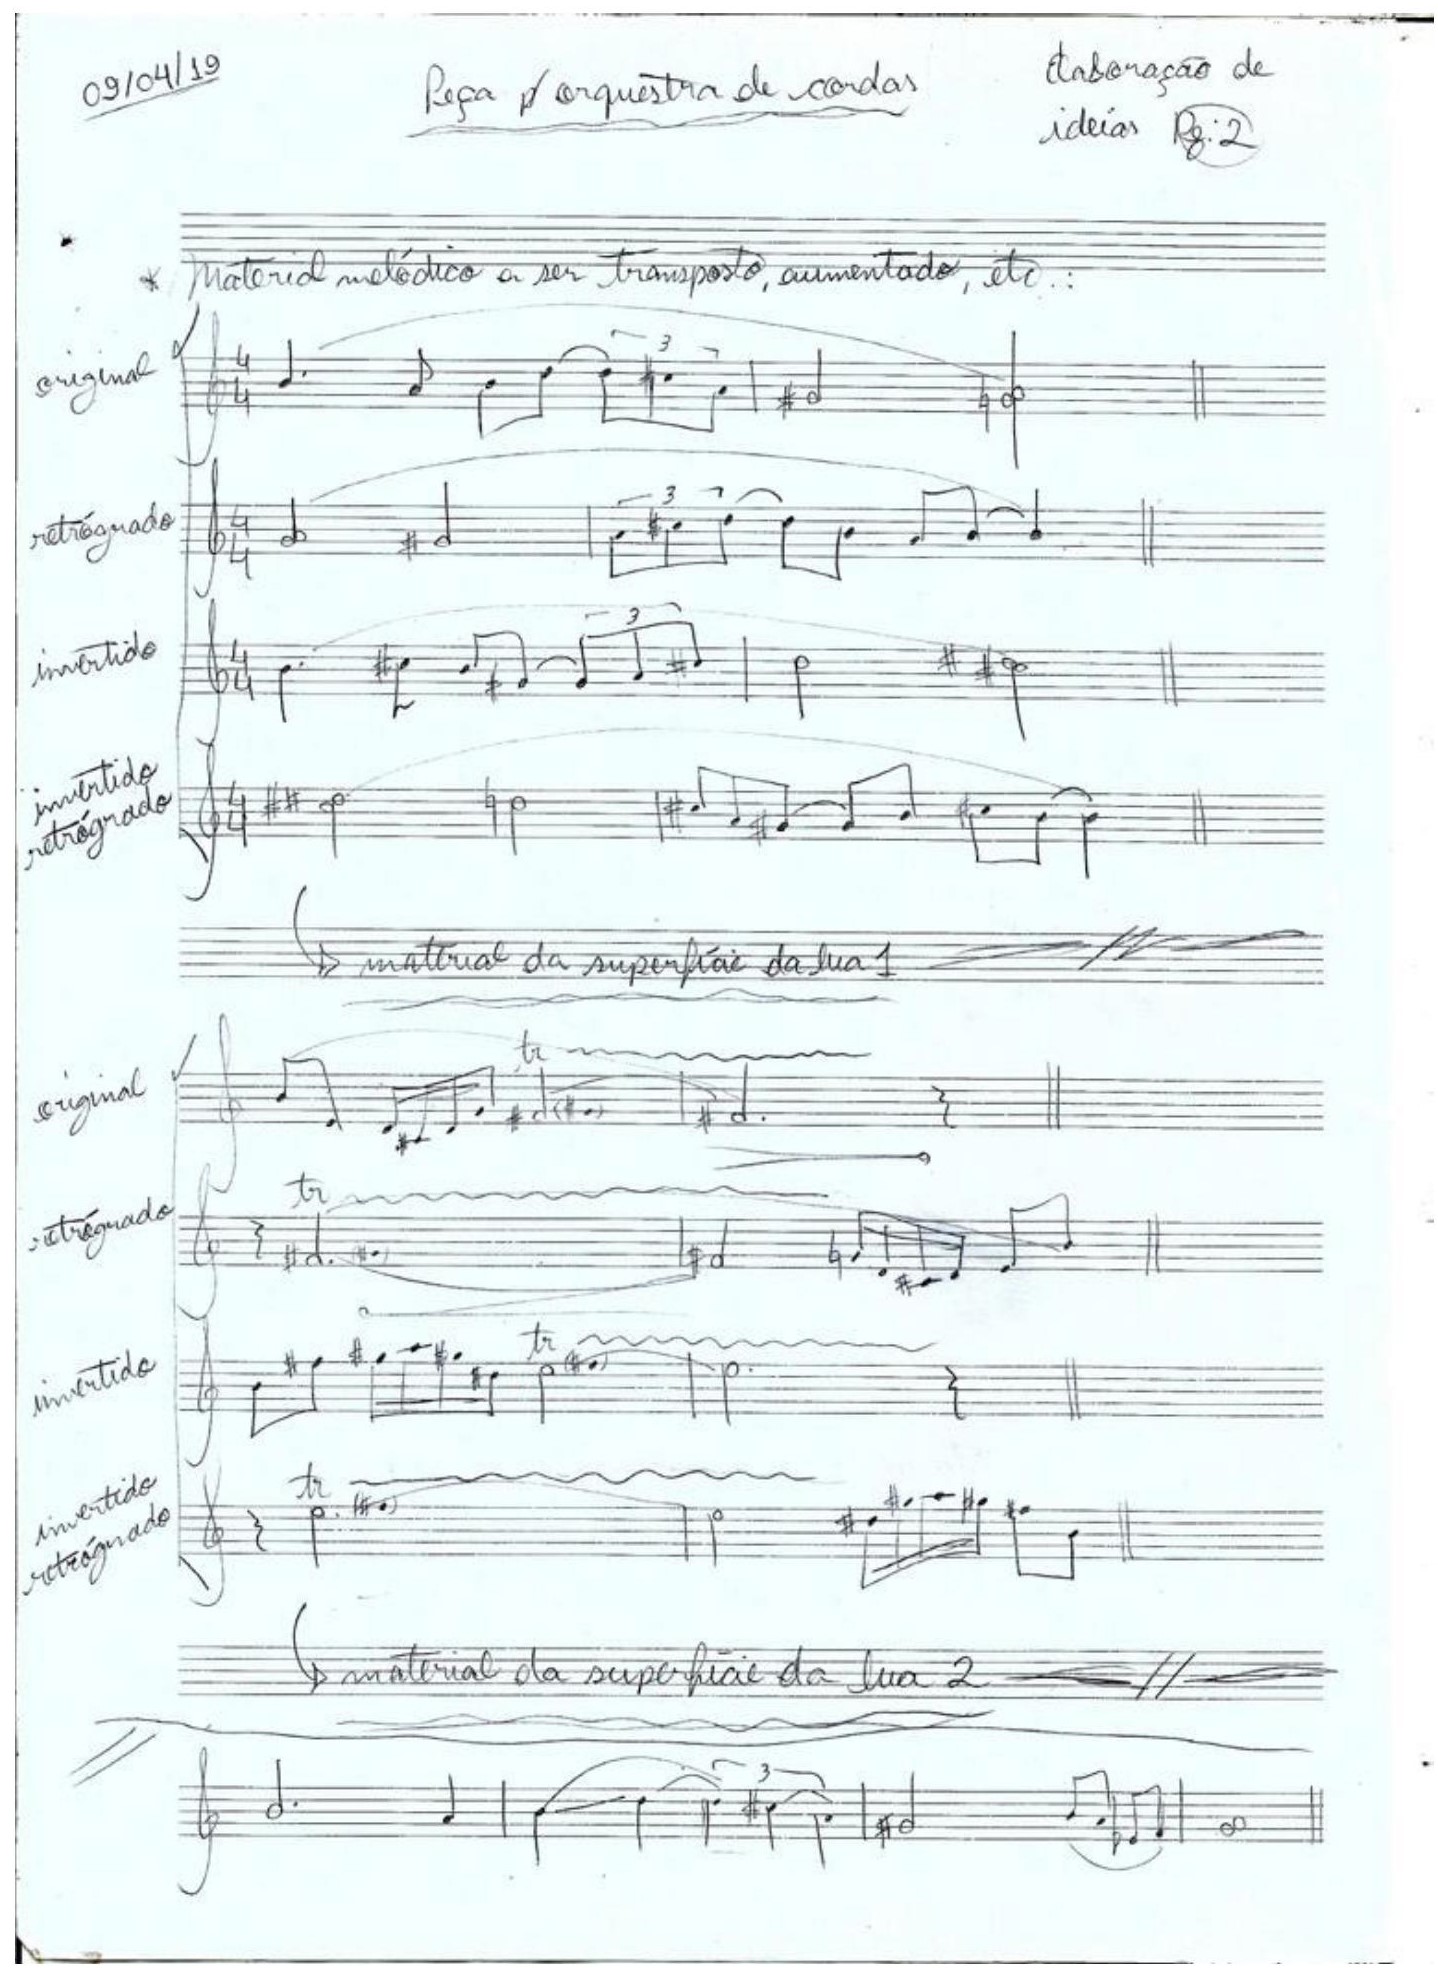 09/04/19
Peça p/ orquestra de cordas
Elaboração de
ideias Pg: 2
* Material melódico a ser transposto, aumentado, etc.:
original
3
retrógrado
3
invertido
3
invertido
retrógrado
material da superfície da lua 1
original
tr
retrógrado
tr
invertido
tr
invertido
retrógrado
tr
material da superfície da lua 2
3